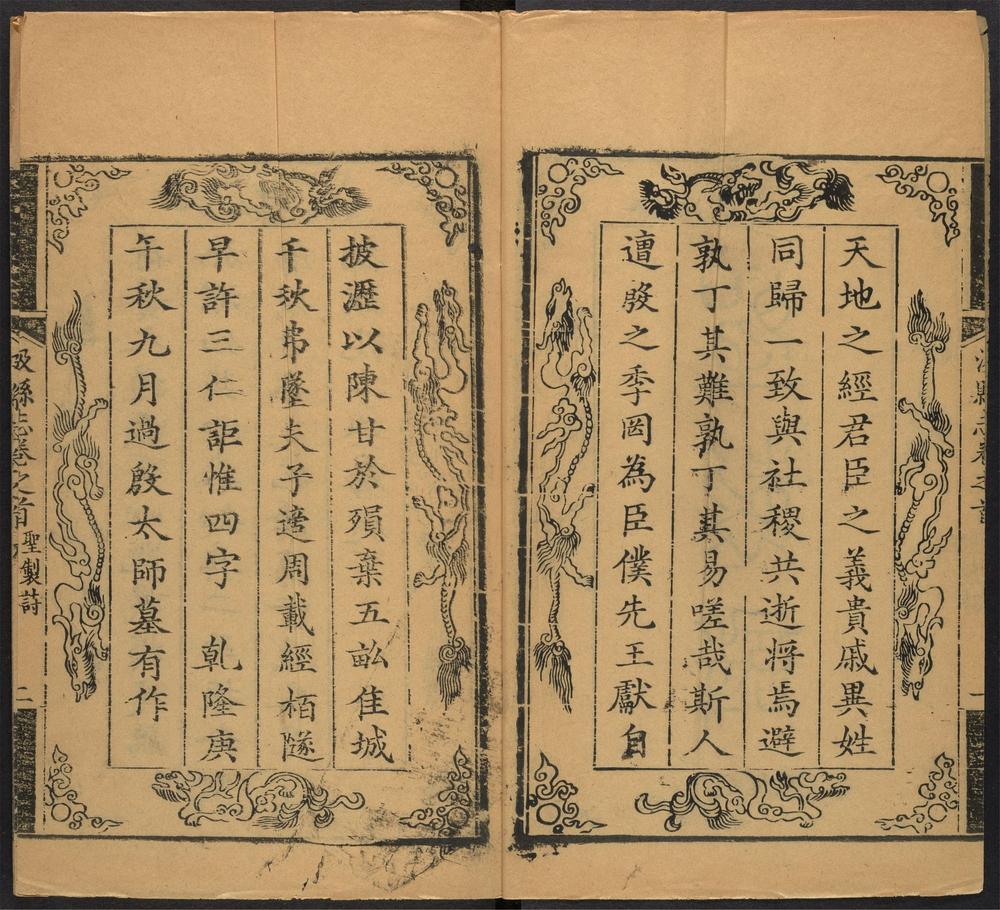 天地之經君臣之義貴戚異姓
同歸一致與社稷共逝將焉避
孰丁其難孰丁其易嗟哉斯人
遭殷之季罔為臣僕先王獻自
披瀝以陳甘於殞棄五畝佳城
千秋弗墜夫子適周載經栢隧
早許三仁詎惟四字 乹隆庚
午秋九月過殷太師墓有作
汲縣志卷之首 聖製詩 二